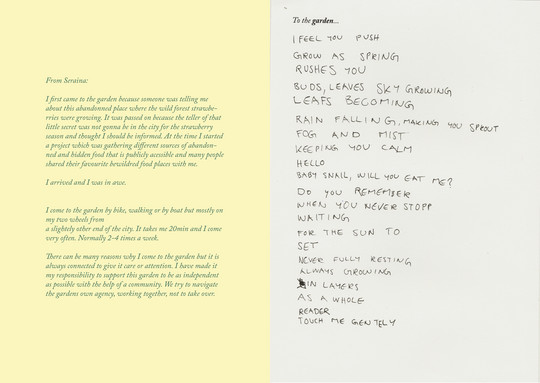 From Seraina:
I first came to the garden because someone was telling me
about this abandonned place where the wild forest strawbe-
rries were growing. It was passed on because the teller of that
little secret was not gonna be in the city for the strawberry
season and thought I should be informed. At the time I started
a project which was gathering different sources of abandon-
ned and hidden food that is publicly accessible and many people
shared their favourite bewildred food places with me.
I arrived and I was in awe.
I come to the garden by bike, walking or by boat but mostly on
my two wheels from
a slightely other end of the city. It takes me 20min and I come
very often. Normally 2-4 times a week.
There can be many reasons why I come to the garden but it is
always connected to give it care or attention. I have made it
my responsibility to support this garden to be as independent
as possible with the help of a community. We try to navigate
the gardens own agency, working together, not to take over.
To the garden...
I FEEL YOU PUSH
GROW AS SPRING
RUSHES YOU
BUDS, LEAVES SKY GROWING
LEAFS BECOMING
RAIN FALLING, MAKING YOU SPROUT
FOG AND MIST
KEEPING YOU CALM
HELLO
BABY SNAIL, WILL YOU EAT ME?
DO YOU REMEMBER
WHEN YOU NEVER STOPP
WAITING
FOR THE SUN TO
SET
NEVER FULLY RESTING
ALWAYS GROWING
IN LAYERS
AS A WHOLE
READER
TOUCH ME GENTELY